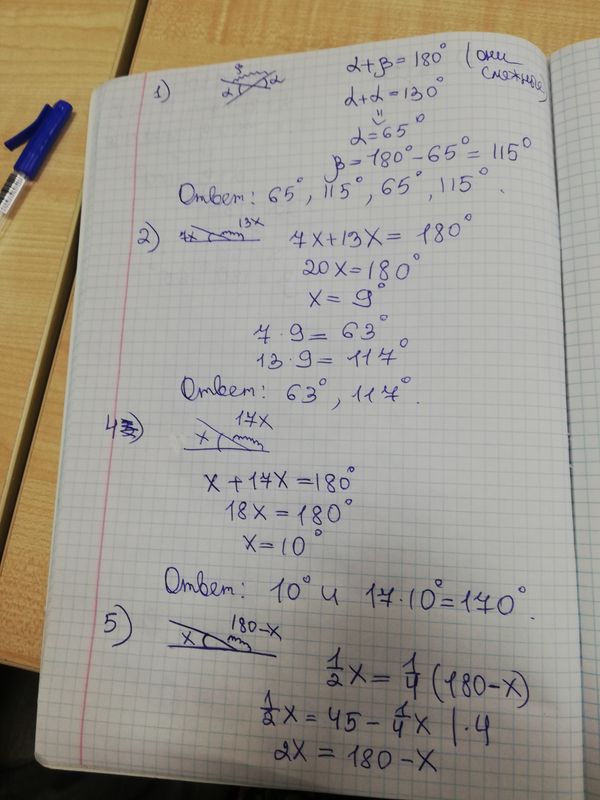 1) β α α α+β=180° (они смежные)
α+α=130°
α=65°
β=180°-65°=115°
Ответ: 65°, 115°, 65°, 115°.
2) 7x 13x 7x+13x=180°
20x=180°
x=9°
7·9=63°
13·9=117°
Ответ: 63°, 117°.
4) x 17x
x+17x=180°
18x=180°
x=10°
Ответ: 10° и 17·10°=170°.
5) x 180-x
1/2x=1/4(180-x)
1/2x=45-1/4x |·4
2x=180-x